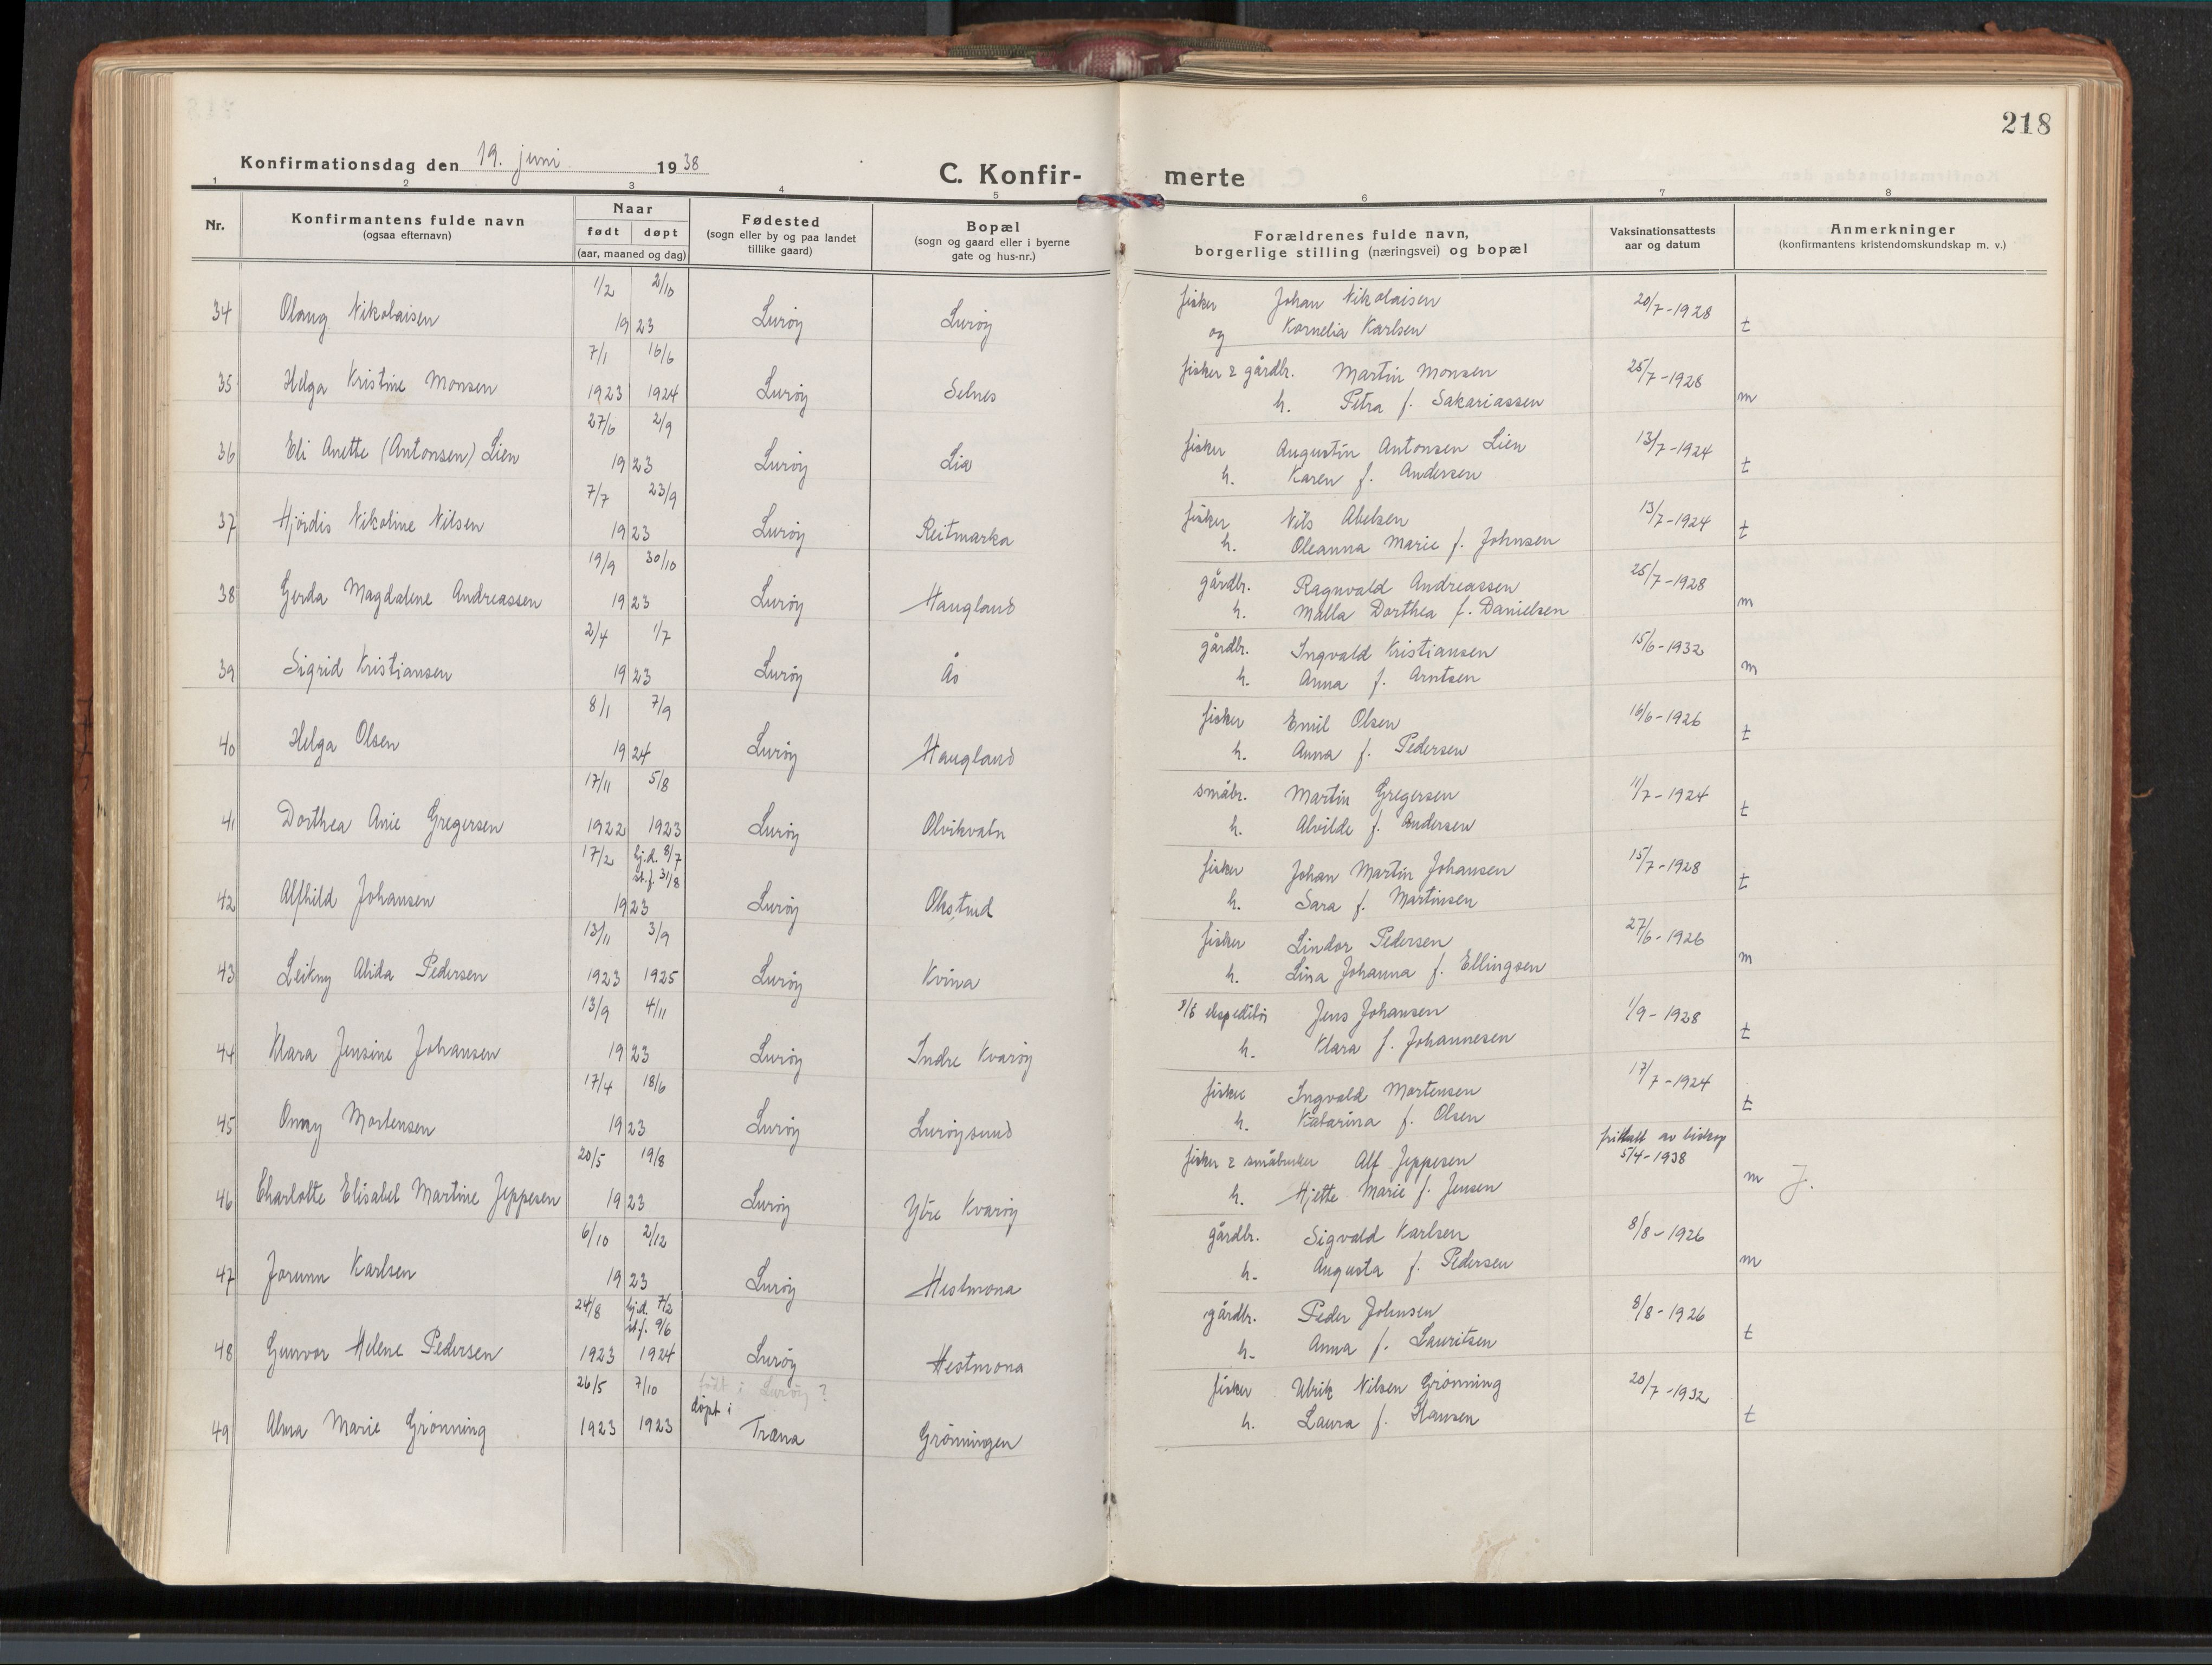 218
Konfirmationsdag den 19. juni 1938
C. Konfir- merte
1 2 3 4 5 6 7 8
Nr. Konfirmantens fulde navn (ogsaa efternavn) Naar født døpt (aar, maaned og dag) Fødested (sogn eller by og paa landet tillike gaard) Bopæl (sogn og gaard eller i byerne gate og hus-nr.) Forældrenes fulde navn, borgerlige stilling (næringsvei) og bopæl Vaksinationsattests aar og datum Anmerkninger (konfirmantens kristendomskundskap m. v.)
34 Olaug Nikolaisen 1/2 2/10 1923 Lurøy Lurøy fisker Johan Nikolaisen 20/7-1928 t
og Kornelia Karlsen
35 Helga Kristine Monsen 7/1 1923 16/6 1924 Lurøy Selnes fisker & gårdbr. Martin Monsen 25/7-1928 m
h. Petra f. Sakariassen
36 Eli Anette (Antonsen) Lien 27/6 2/9 1923 Lurøy Lia fisker Augustin Antonsen Lien 13/7-1924 t
h. Karen f. Andersen
37 Hjørdis Nikoline Nilsen 7/7 23/9 1923 Lurøy Reitmarka fisker Nils Abelsen 13/7-1924 t
h. Oleanna Marie f. Johnsen
38 Gerda Magdalene Andreassen 19/9 30/10 1923 Lurøy Haugland gårdbr. Ragnvald Andreassen 25/7-1928 m
h. Malla Dorthea f. Danielsen
39 Sigrid Kristiansen 2/4 1/7 1923 Lurøy Ås gårdbr. Ingvald Kristiansen 15/6-1932 m
h. Anna f. Arntsen
40 Helga Olsen 8/1 7/9 1924 Lurøy Haugland fisker Emil Olsen 16/6-1926 t
h. Anna f. Pedersen
41 Dorthea Anie Gregersen 17/11 1922 5/8 1923 Lurøy Olvikvatn småbr. Martin Gregersen 11/7-1924 t
h. Alvilde f. Andersen
42 Alfhild Johansen 17/2 hj.d. 8/7 st.f. 31/8 1923 Lurøy Okstind fisker Johan Martin Johansen 15/7-1928 t
h. Sara f. Martinsen
43 Leikny Alida Pedersen 13/11 1923 3/9 1925 Lurøy Kvina fisker Lindor Pedersen 27/6-1926 m
h. Lina Johanna f. Ellingsen
44 Klara Jensine Johansen 13/9 4/11 1923 Lurøy Indre Kvarøy ekspeditør Jens Johansen 1/9-1928 t
h. Klara f. Johannesen
45 Onny Mortensen 17/4 18/6 1923 Lurøy Lurøysund fisker Ingvald Mortensen 17/7-1924 t
h. Katarina f. Olsen
46 Charlotte Elisabet Martine Jeppesen 20/5 19/8 1923 Lurøy Ytre Kvarøy fisker & småbruker Alf Jeppesen fritatt av biskop 5/4-1938 m J.
h. Hjette Marie f. Jensen
47 Jorunn Karlsen 6/10 2/12 1923 Lurøy Hestmona gårdbr. Sigvald Karlsen 8/8-1926 m
h. Augusta f. Pedersen
48 Gunvor Helene Pedersen 24/8 1923 hj.d. 7/2 st.f. 9/6 1924 Lurøy Hestmona gårdbr. Peder Johnsen 8/8-1926 t
h. Anna f. Lauritsen
49 Alma Marie Grønning 26/5 1923 7/10 1923 født i Lurøy? døpt i Træna Grønningen fisker Ulrik Nilsen Grønning 20/7-1932 t
h. Laura f. Hansen